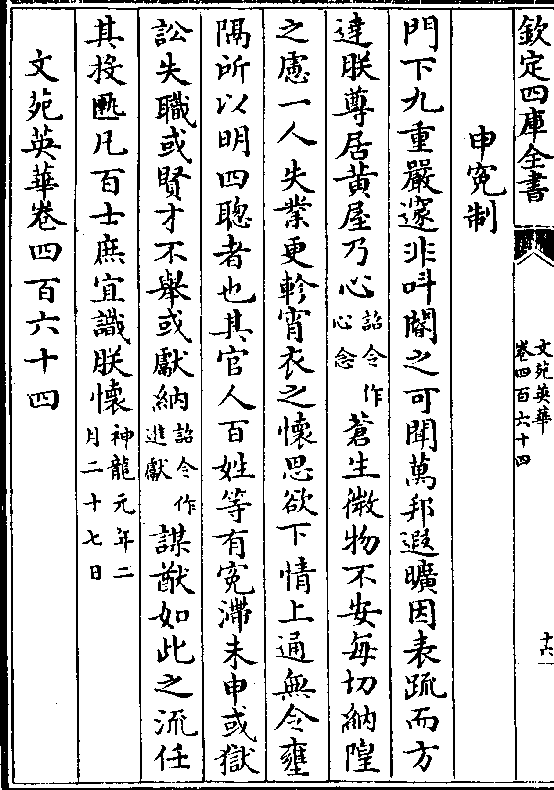 欽定四庫全書
文苑英華
卷四百六十四
十六
申寃制
門下九重嚴邃非叫閽之可聞萬邦遐曠因表疏而方
達朕尊居黃屋乃心詔令作心念蒼生微物不安每切納隍
之慮一人失業更軫宵衣之懷思欲下情上通無令壅
隔所以明四聰者也其官人百姓等有寃滯未申或獄
訟失職或賢才不舉或獻納詔令作進獻謀猷如此之流任
其投匭凡百士庶宜識朕懷神龍元年二月二十七日
文苑英華卷四百六十四